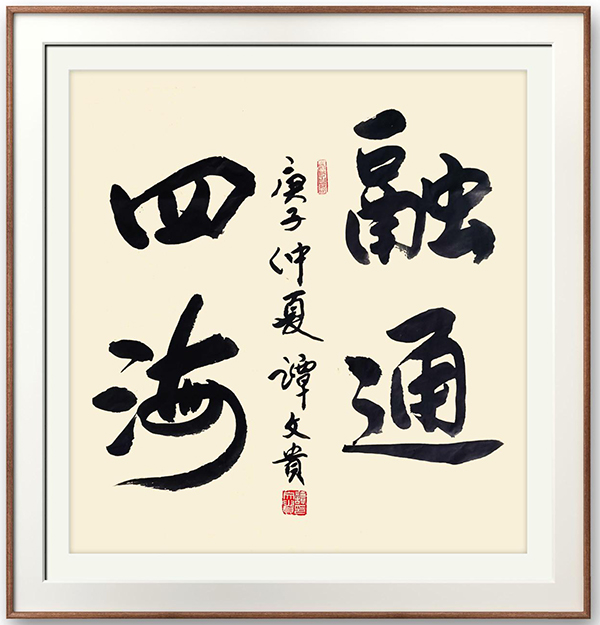 融通
四海
庚子仲夏 譚文貴